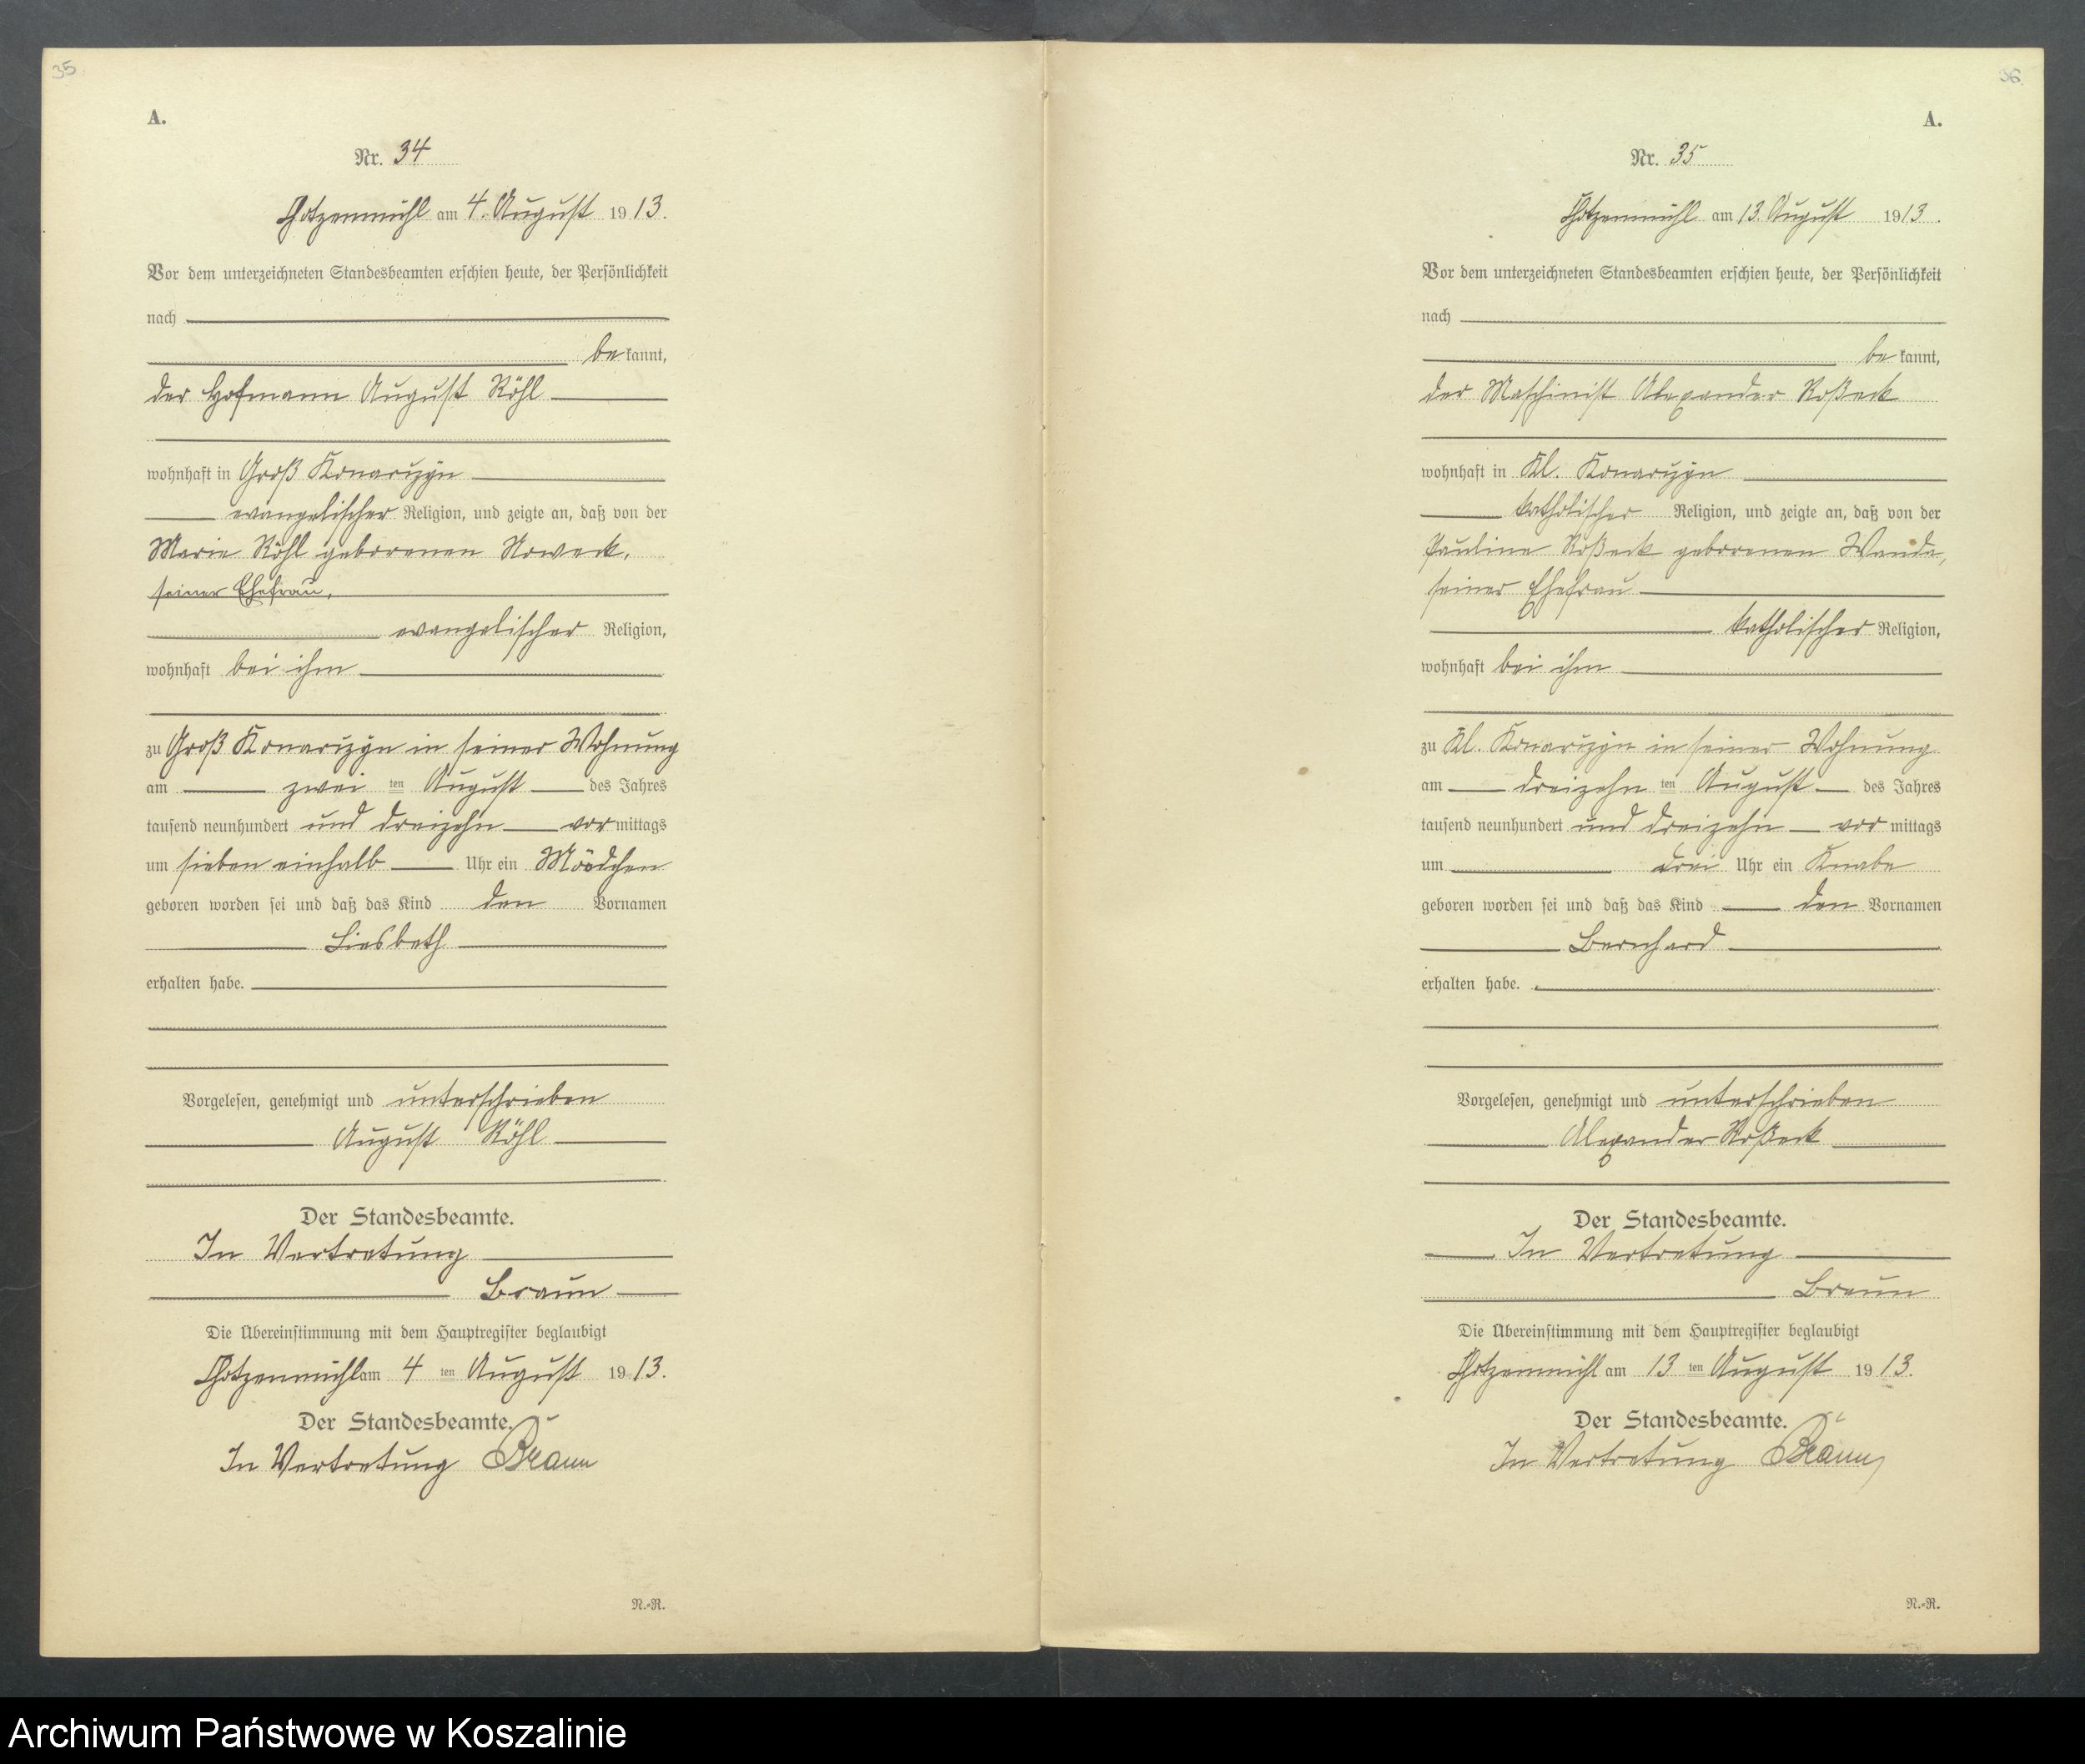 35
A.
Nr. 34
Chotzenmühl am 4. August 1913.
Vor dem unterzeichneten Standesbeamten erschien heute, der Persönlichkeit
nach
be kannt,
der Hofmann August Röhl
wohnhaft in Groß Konarczyn
evangelischer Religion, und zeigte an, daß von der
Marie Röhl geborenen Noweck,
seiner Ehefrau,
evangelischer Religion,
wohnhaft bei ihm
zu Groß Konarczyn in seiner Wohnung
am zwei ten August des Jahres
tausend neunhundert und dreizehn vor mittags
um sieben einhalb Uhr ein Mädchen
geboren worden sei und daß das Kind den Vornamen
Liesbeth
erhalten habe.
Vorgelesen, genehmigt und unterschrieben
August Röhl
Der Standesbeamte.
In Vertretung
Braun
Die Übereinstimmung mit dem Hauptregister beglaubigt
Chotzenmühl am 4 ten August 1913.
Der Standesbeamte.
In Vertretung Braun
N.-R.
36
A.
Nr. 35
Chotzenmühl am 13. August 1913.
Vor dem unterzeichneten Standesbeamten erschien heute, der Persönlichkeit
nach
be kannt,
der Maschinist Alexander Roßeck
wohnhaft in Kl. Konarczyn
katholischer Religion, und zeigte an, daß von der
Pauline Roßeck geborenen Wanda,
seiner Ehefrau
katholischer Religion,
wohnhaft bei ihm
zu Kl. Konarczyn in seiner Wohnung
am dreizehn ten August des Jahres
tausend neunhundert und dreizehn vor mittags
um drei Uhr ein Knabe
geboren worden sei und daß das Kind den Vornamen
Bernhard
erhalten habe.
Vorgelesen, genehmigt und unterschrieben
Alexander Roßeck
Der Standesbeamte.
In Vertretung
Braun
Die Übereinstimmung mit dem Hauptregister beglaubigt
Chotzenmühl am 13 ten August 1913.
Der Standesbeamte.
In Vertretung Braun
N.-R.
Archiwum Państwowe w Koszalinie